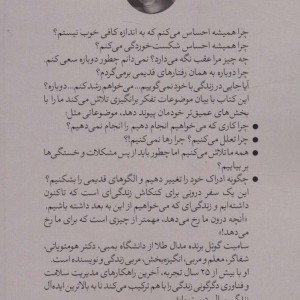 چرا همیشه احساس می‌کنم که به اندازه کافی خوب نیستم؟
چرا همیشه احساس شکست‌خوردگی می‌کنم؟
چه چیز مرا عقب نگه می‌دارد؟ نمی‌دانم چطور دوباره سعی کنم.
چرا دوباره به همان رفتارهای قدیمی برمی‌گردم؟
آیا جایی در زندگی با خود نمی‌گوییم...می‌خواهم رشد کنم...دوباره؟
این کتاب با بیان موضوعات تفکر برانگیزی تلاش می‌کند ما را با
بخش‌های عمیق‌تری خودمان پیوند دهد، موضوعاتی مثل:
● چرا کاری که می‌خواهیم انجام دهیم را انجام نمی‌دهیم؟
● چرا تعلل می‌کنیم؟ چرا رها نمی‌کنیم؟!
● همه ما تلاش می‌کنیم اما چطور باید از پس مشکلات و خستگی‌ها
بر بیاییم؟
● چگونه ادراک خود را تغییر دهیم و الگوهای قدیمی را بشکنیم؟
این یک سفر درونی برای کنکاش زندگی‌ای است که تاکنون
داشته‌ایم و زندگی‌ای که می‌خواهیم از این به بعد داشته باشیم.
«آنچه درون ما رخ می‌دهد، مهمتر از چیزی است که برای ما رخ
می‌دهد!»
سامیت گوئل برنده مدال طلا از دانشگاه بمبی، دکتر هومئوپاتی،
شفاگر، معلم و مربی، انگیزه‌بخش، مربی زندگی و نویسنده است.
او با بیش از ۲۵ سال تجربه، آخرین راهکارهای مدیریت سلامت
و فناوری دگرگونی زندگی را با هم ترکیب می‌کند تا به بالاترین ایده‌آل